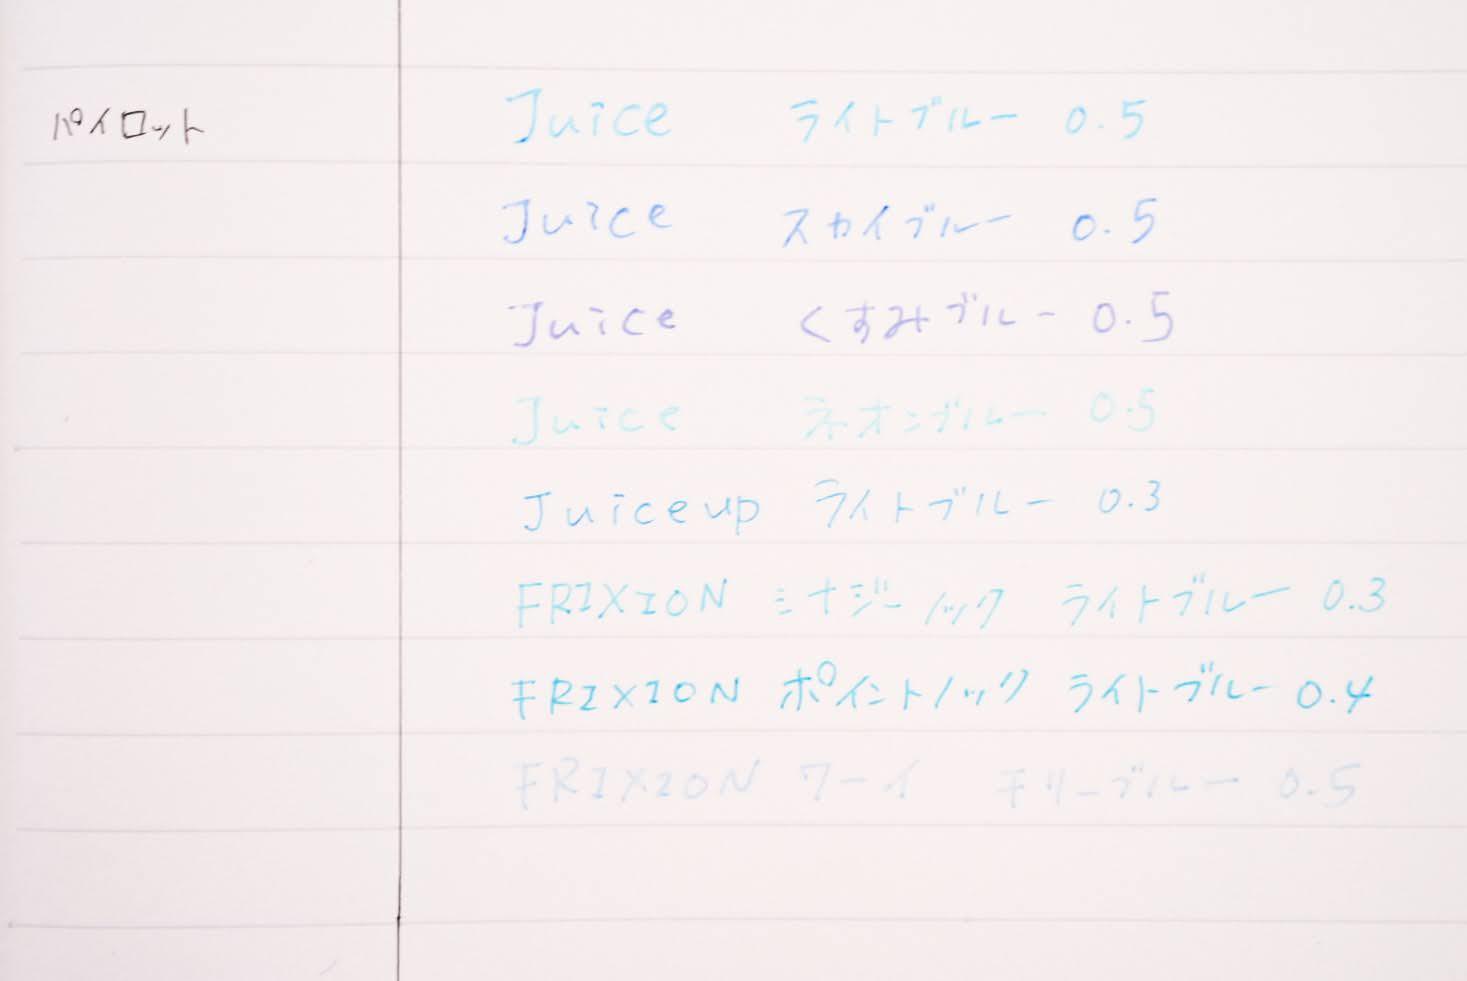 パイロット
Juice ライトブルー 0.5
Juice スカイブルー 0.5
Juice くすみブルー 0.5
Juice ネオンブルー 0.5
Juice up ライトブルー 0.3
FRIXION シナジーノック ライトブルー 0.3
FRIXION ポイントノック ライトブルー 0.4
FRIXION ワーイ チリーブルー 0.5